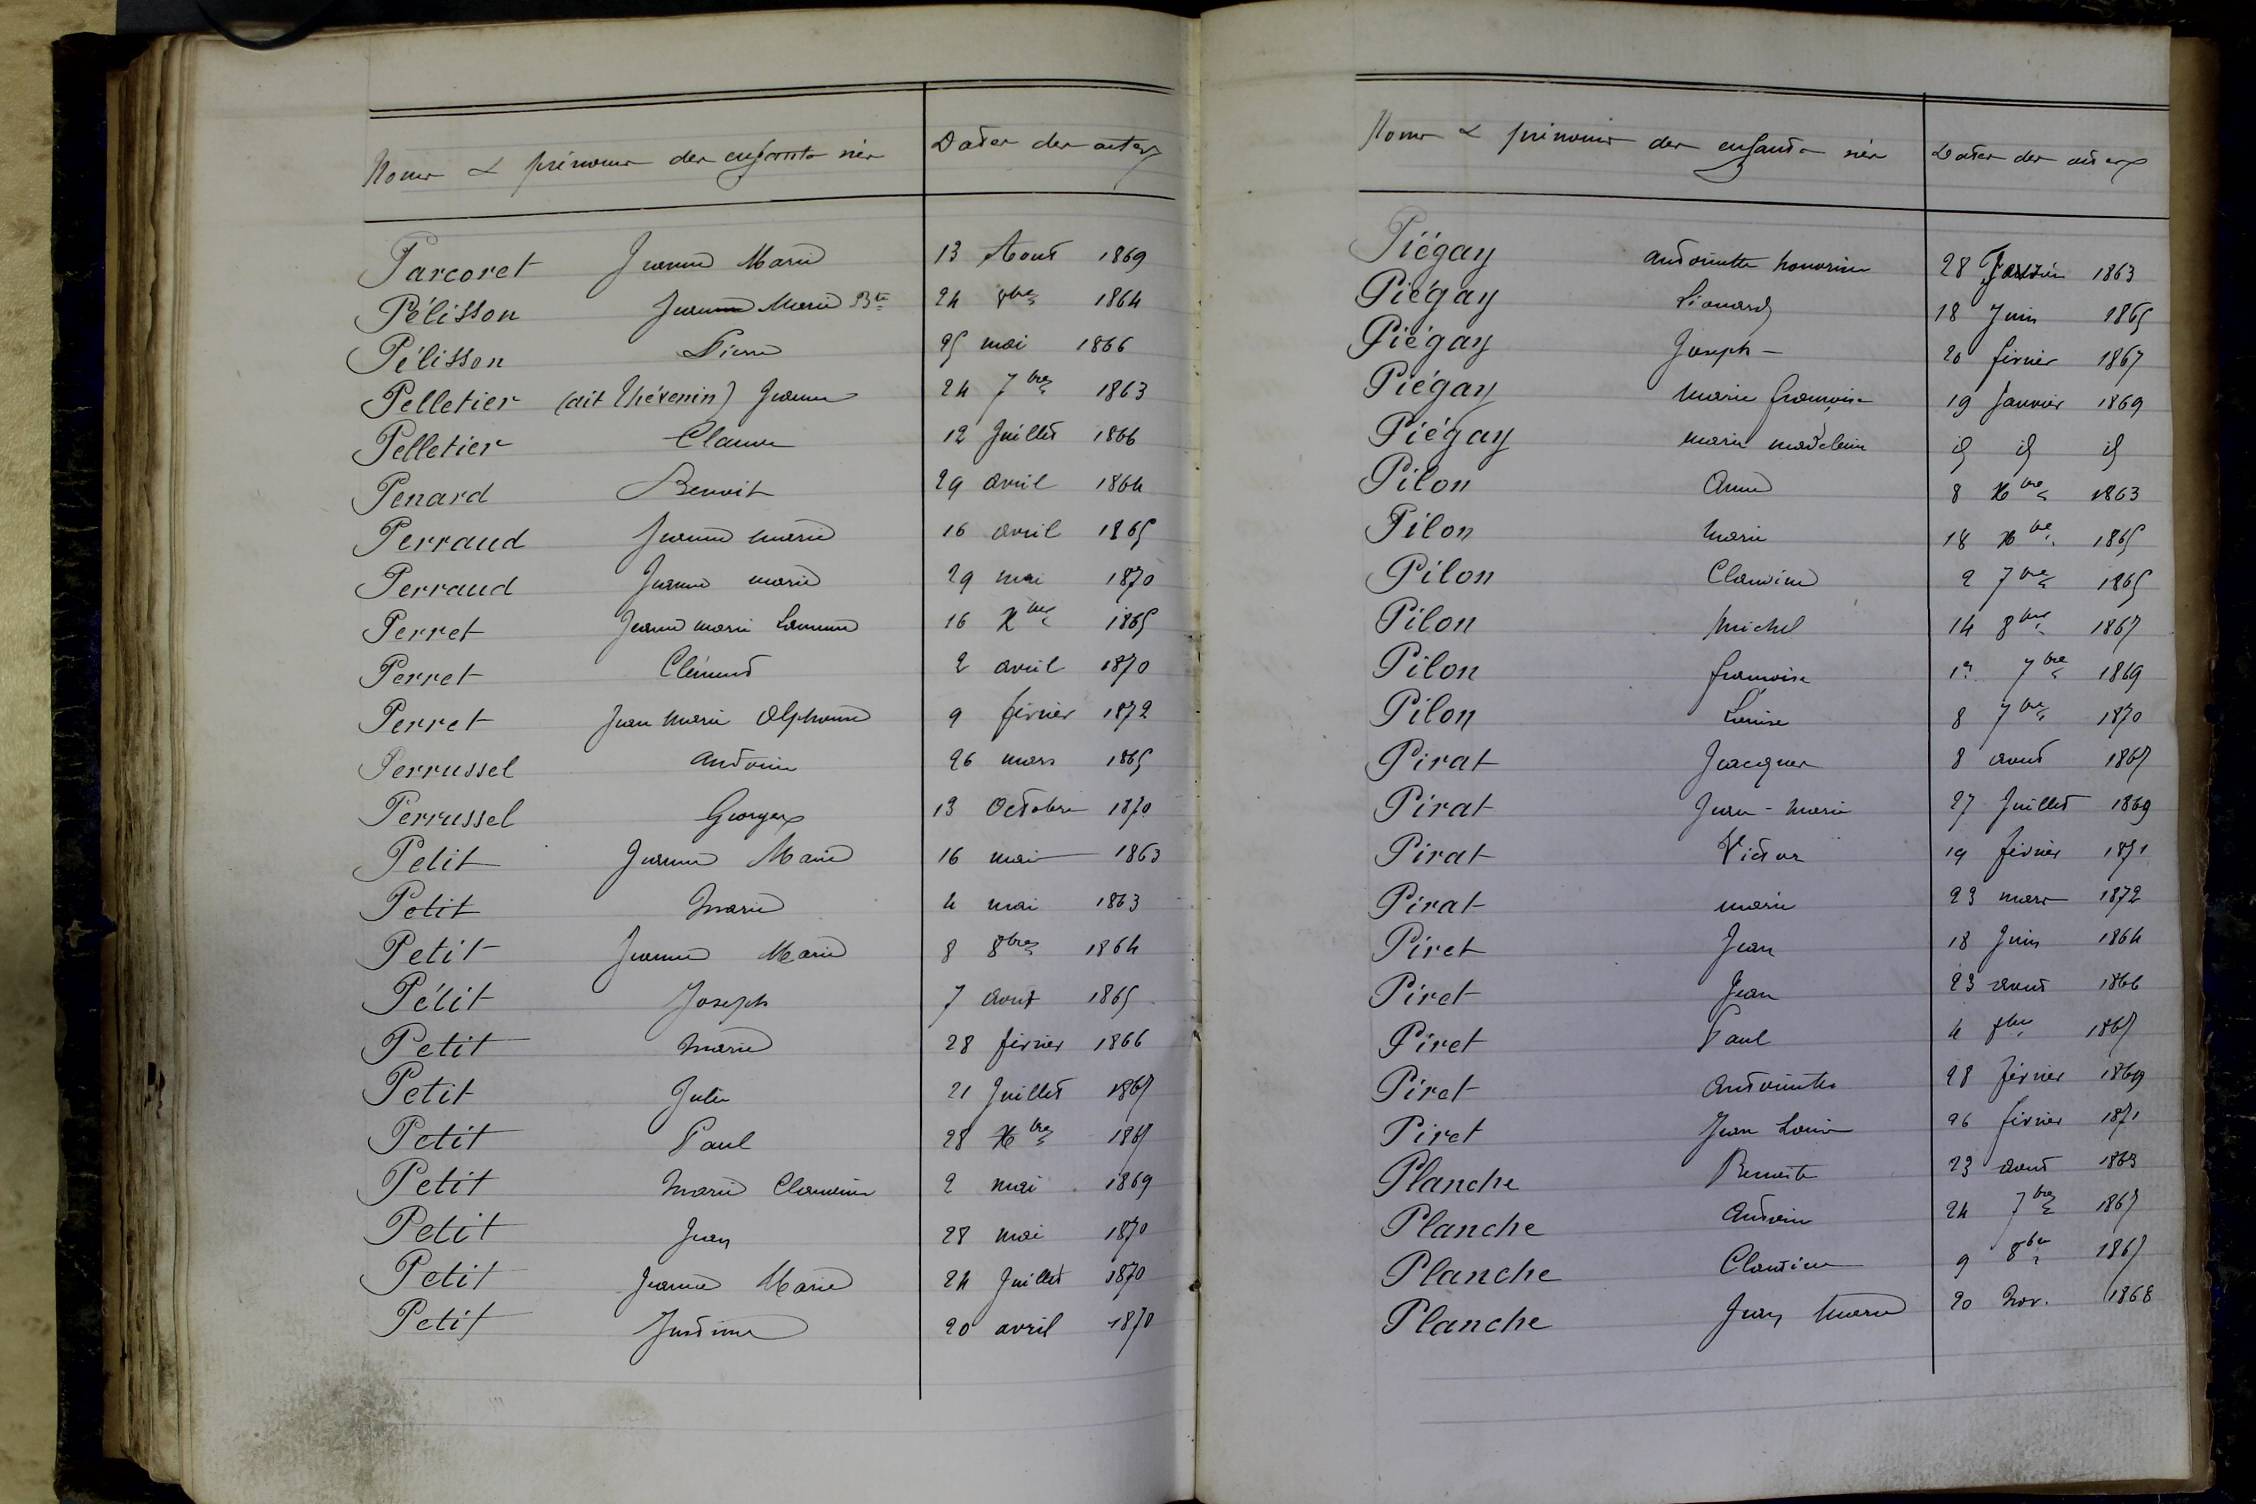 Noms & prénoms des enfants nés Dates des actes
Parcoret Jeanne Marie 13 Aout 1869
Pélisson Jean Marie Bte 24 8bre 1864
Pélisson Pierre 25 mai 1866
Pelletier (dit Thévenin) Jeanne 24 7bre 1863
Pelletier Claude 12 Juillet 1866
Penard Benoit 29 avril 1864
Perraud Jeanne marie 16 avril 1865
Perraud Jeanne marie 29 mai 1870
Perret Jeanne marie 16 Xbre 1865
Perret Clément 2 avril 1870
Perret Jean Marie Alphonse 9 février 1872
Perrussel Antoine 26 mars 1865
Perrussel Georges 13 Octobre 1870
Petit Jeanne Marie 16 mai 1863
Petit Marie 4 mai 1863
Petit Jeanne Marie 8 8bre 1864
Pétit Joseph 7 aout 1865
Petit Marie 28 février 1866
Petit Julie 21 Juillet 1867
Petit Paul 28 Xbre 1867
Petit Marie Claudine 2 mai 1869
Petit Jean 28 mai 1870
Petit Jeanne Marie 24 Juillet 1870
Petit Justine 20 avril 1870
Noms & prénoms des enfants nés Dates des actes
Piégay Antoinette honorine 28 1863
Piégay Léonard 18 Juin 1865
Piégay Joseph 20 février 1867
Piégay Marie françoise 19 Janvier 1869
Piégay marie madeleine id id id
Pilon Anne 8 Xbre 1863
Pilon Marie 18 Xbre 1865
Pilon Claudine 2 7bre 1865
Pilon Michel 14 8bre 1867
Pilon françoise 1er 7bre 1869
Pilon Louise 8 7bre 1870
Pirat Jacques 8 aout 1867
Pirat Jean-Marie 27 Juillet 1869
Pirat Victor 19 février 1871
Pirat marie 23 mars 1872
Piret Jean 18 Juin 1864
Piret Jean 23 aout 1866
Piret Paul 4 8bre 1867
Piret Antoinette 28 février 1869
Piret Jean Louis 26 février 1871
Planche Benoite 23 aout 1863
Planche Antoine 24 7bre 1867
Planche Claudine 9 8bre 1867
Planche Jean Marie 20 Nov. 1868